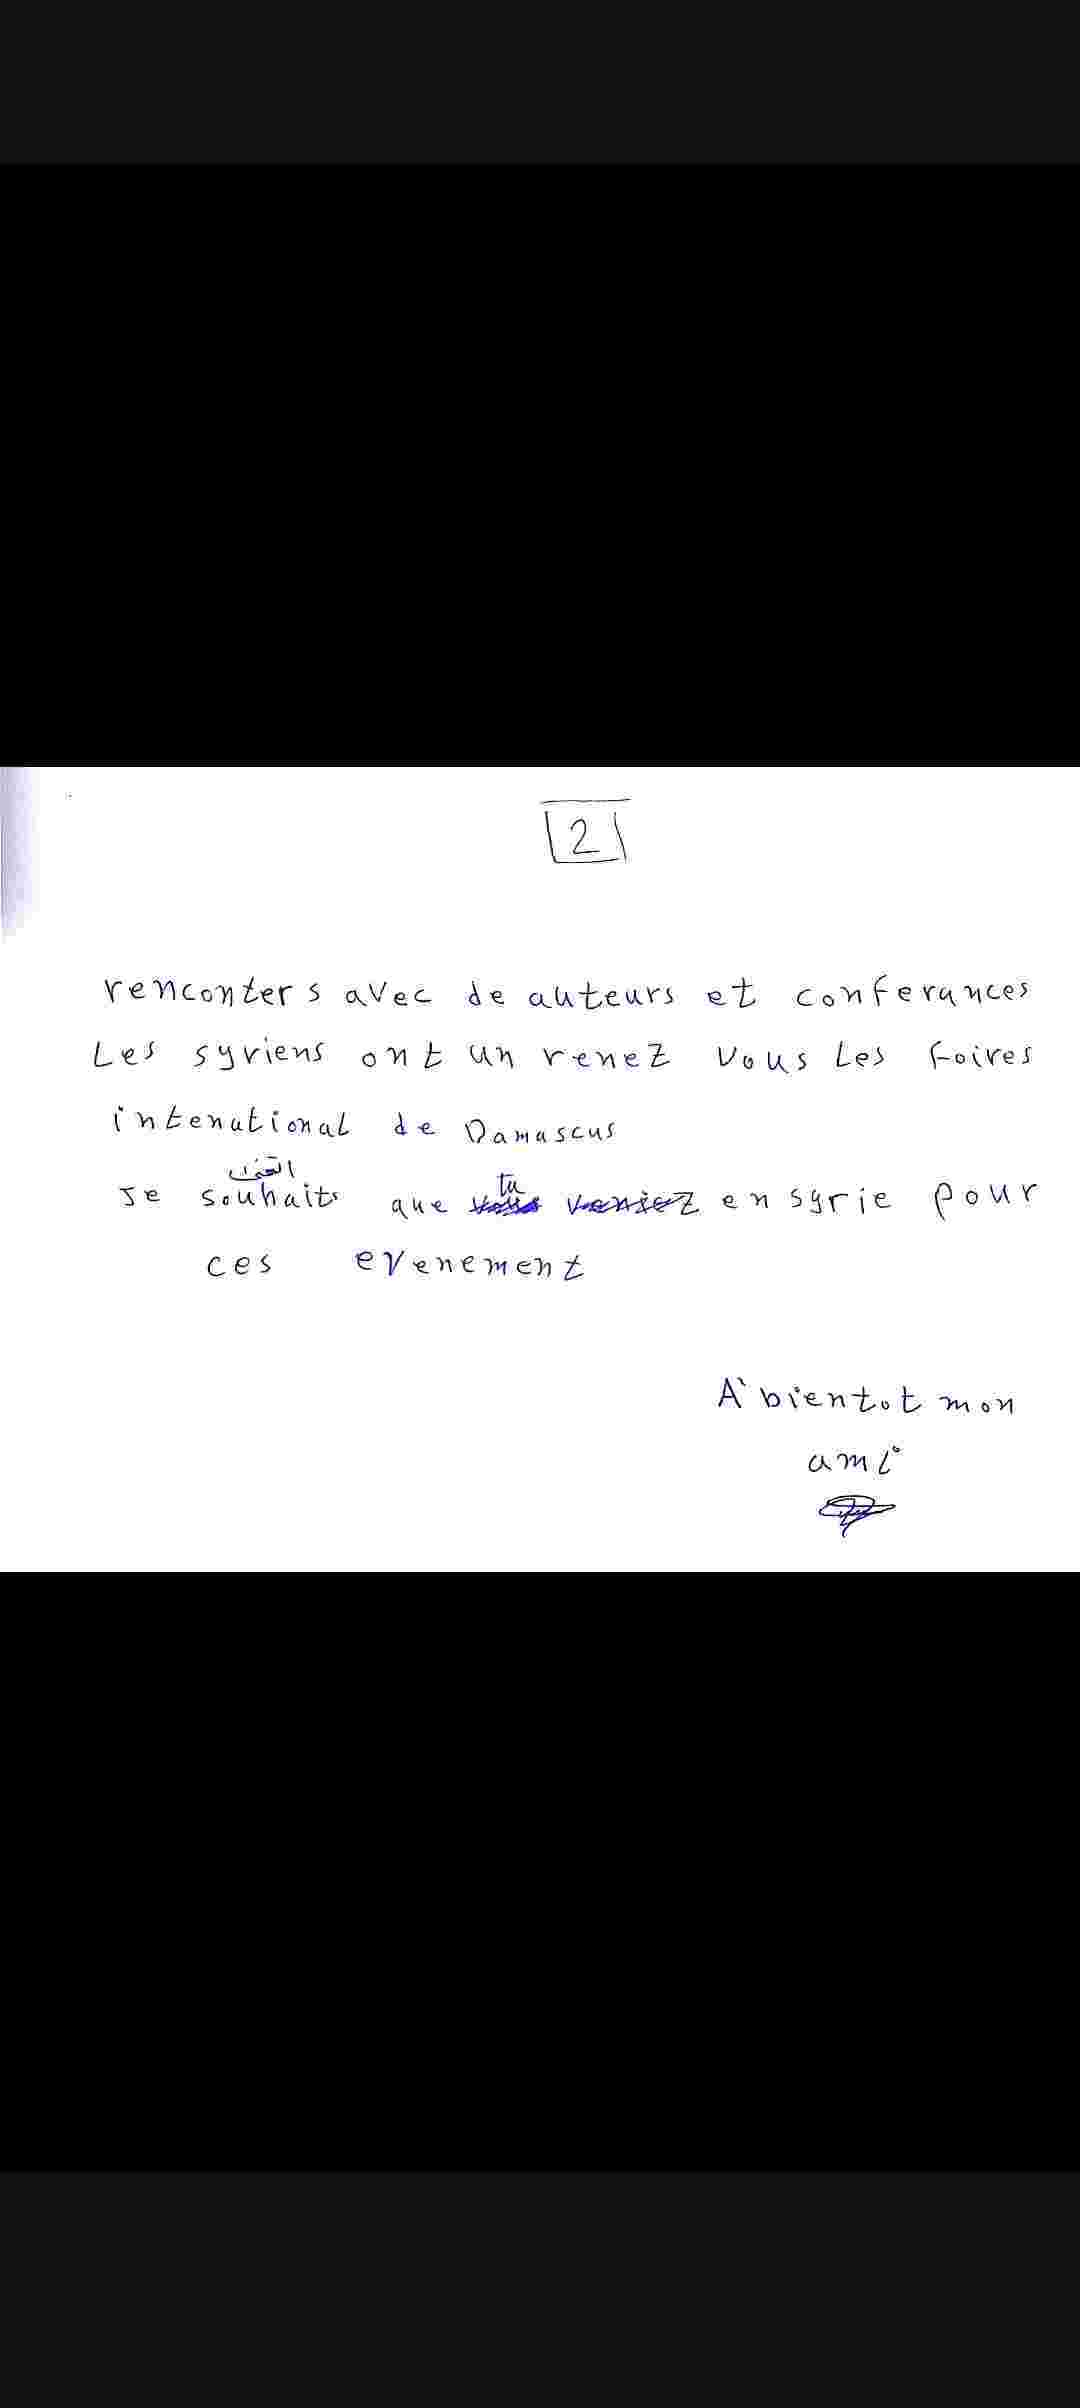 2
renconters avec de auteurs et conferances
Les syriens ont un renez vous Les foires
intenational de Damascus
اتمنى
Je souhaits que tu veniez en syrie pour
ces evenement
A' bientot mon
ami